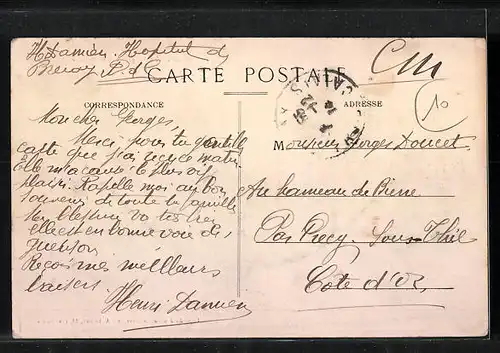 H Damien. Hopital de
CARTE POSTALE
CM
CORRESPONDANCE
ADRESSE
10
Mon cher Georges
Merci pour ta gentille
carte que j'ai reçue ce matin
Elle m'a causé le plus vif
plaisir. Rapelle moi au bon
souvenir de toute ta famille
Ma blessure va très
elle est en bonne voie de
guérison
Reçois mes meilleurs
baisers
Henri Damien
Monsieur Georges Doucet
Au hameau de Bierre
Par Precy-Sous-Thil
Côte d'Or